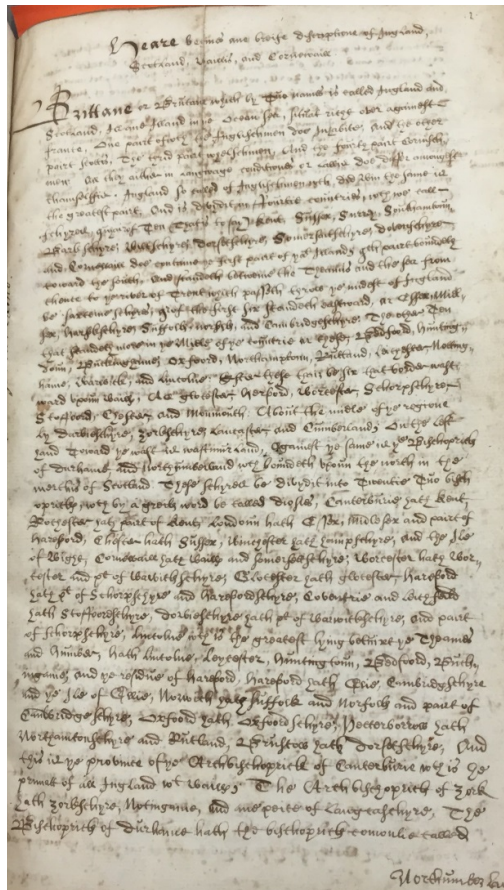 Heare begines ane breife discriptione of Ingland,
Scotland, Vailis, and Cornewaill
Brittane or Britane which by Two names is called Ingland and
Scotland, Is ane Island in ye Ocean sea, situat richt over againest
france. One part of it Inglischmen doe Inhabite, And ye other
part Scotis, The third part Welschmen, And the fourt part Cornisch
men. All they aither in Language conditiones or Lawis doe differ among
thamselffis. Ingland so called of Inglischmen did win the same is
the greatest part. And is devydit in countries we call
schyres, Ten to say Kent, Sussex, Surrey, Southamtoun,
Barkschyre, Wilschyre, Dorsetschyre, Somersetschyre, Devonschyre
and Cornewaill doe containe ye first part of ye Island, part boundeth
toward the south, And standeth betwene the Thames and the sea. from
thence to ye river of Trent which passeth throw ye midest of Ingland
be saxteene schyres, of the first six standeth eastward, as Essex,
Harfordschyre Suffolk, norfolk, and Cambridgeschyre. The other Ten
that standeth more in ye midle of ye countrie ar Bedfoord, Hunting
doun, Buckinghame, Oxfoord, Northamptoun, Rutland, Leycester, Notting
hame, Warwick, and Lincolne. Efter these thair be six that border west
ward upoun Waills, As Glocester, Herfoord, Worcester, Schorpschyre,
Stafford, Chester and Monmouth. About the midle of ye regione
ly Darbieschyre, Yorkschyre, Lancaster and Cumberland. On the left
hand Toward ye west is westmurland, Against ye same is ye Bischoprick
of Durhame and Northumberland wch boundeth upoun the north in the
merchis of Scotland. These schyres be devydit into Twentie Two bisch
opricks, wch by a greik word be called diosies, Canterburie hath Kent,
Rochester hath part of Kent, Londoun hath Essex, Midlesex and part of
Hareford, Chester hath Sussex, Winchester hath hampschyre, and the Ile
of Wight, hath and somersetschyre, Worcester hath Wor-
cester and pt of Warwickschyre, Glocester hath Glocester, Hareford
hath pt of Schorpschyre and Harefordschyre, Coventrie and Lichfeild
hath Staffoordschyre, Darbieschyre, hath pt of warwickschyre, and part
of Schorpschyre, Lincolne wch is the greatest lying betwixt ye Thames
and Humber, hath Lincolne, Leycester, Huntingtoun, Bedfoord, Buck-
inghame, and ye residue of Hareford, hath Cambridgschyre
and ye Ile of Ellie, Norwich hath Suffolk and Norfolk and part of
Cambridge schyre, Oxfoord hath Oxfoord schyre, Peeterborrow hath
Northamtonschyre and Rutland, Bristow hath Dorsetschyre, And
this is ye province of ye Archbischoprick of Canterburie wch is ye
primat of all Ingland wt Waills; The Archbischoprick of York
hath Yorkschyre, Notinghame, and ane peice of Lancastschyre, The
Bischoprick of Durhame hath the bischoprick called
Northumber